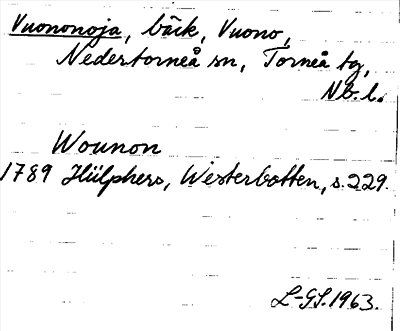 Vuononoja, bäck, Vuono,
Nedertorneå sn, Torneå tg,
Nb. l.
Wounon
1789 Hülphers, Westerbotten, s. 229.
L-GS. 1963.